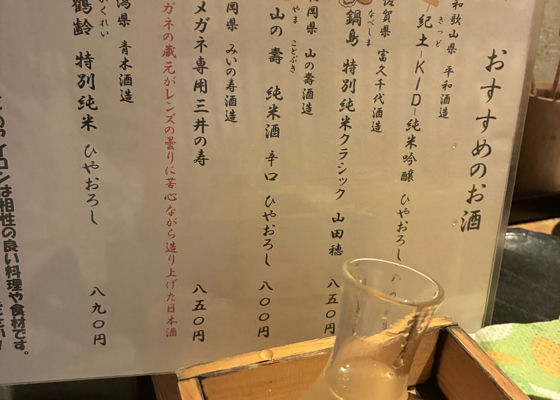 おすすめのお酒
和歌山県 平和酒造
きっど
紀土-KID-純米吟醸 ひやおろし
佐賀県 富久千代酒造
なべしま
鍋島 特別純米クラシック 山田穂 八
岡県 山の壽酒造
やま ことぶき
山の壽 純米酒 辛口 ひやおろし 八〇〇円
岡県 みいの寿酒造
メガネ専用三井の寿 八五〇円
メガネの蔵元がレンズの曇りに苦心ながら造り上げた日本酒
潟県 青木酒造
かくれい
鶴齢 特別純米 ひやおろし 八九〇円
は相性の良い料理や食材です。